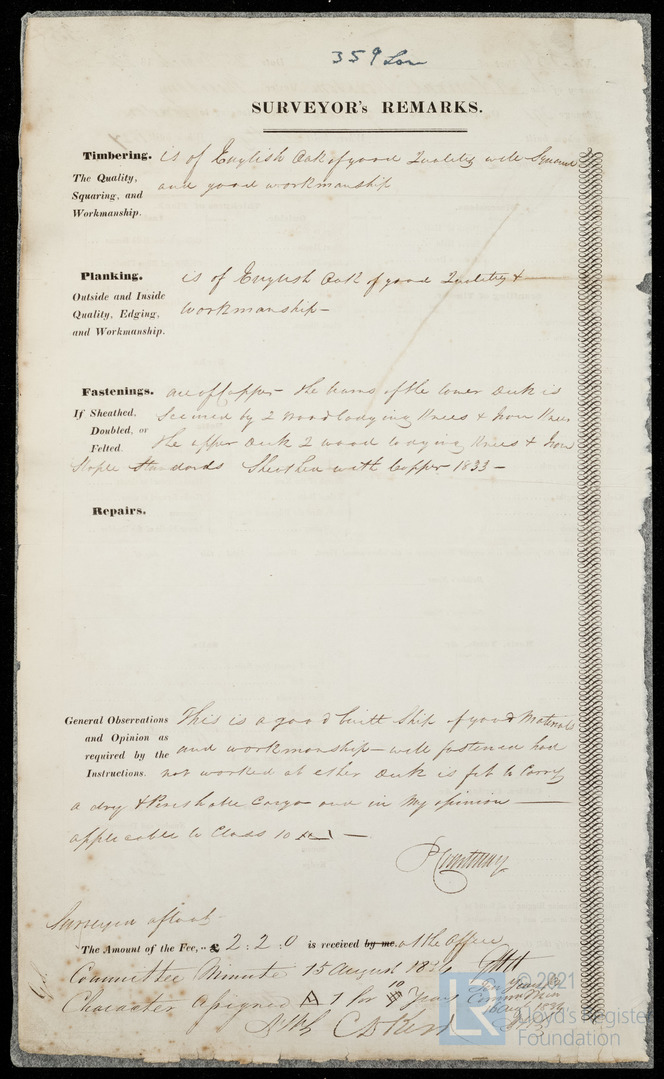 359 Lon
SURVEYOR's REMARKS.
Timbering. is of English Oak of good Quality well Squared
The Quality, and good workmanship
Squaring, and
Workmanship.
Planking. is of English Oak of good Quality &
Outside and Inside
Quality, Edging, workmanship –
and Workmanship.
Fastenings. are of Copper – the beams of the lower Deck is
If Sheathed, Secured by 2 wood lodging Knees & Iron Knees
Doubled, or
Felted. the upper Deck 2 wood lodging Knees & Iron
Staple Standards Sheathed with Copper 1833 –
Repairs.
General Observations This is a good built Ship of good Materials
and Opinion as
required by the and workmanship – well fastened had
Instructions. not worked at either Deck is fit to Carry
a dry & Perishable Cargo and in my opinion
applicable to Class 10 A 1 –
Surveyed afloat
The Amount of the Fee, £ 2 : 2 : 0 is received by me. at the Office
Committee Minute 15 August 1834
Character assigned A 1 for 10 Years
© 2021
LR
Lloyd's Register
Foundation